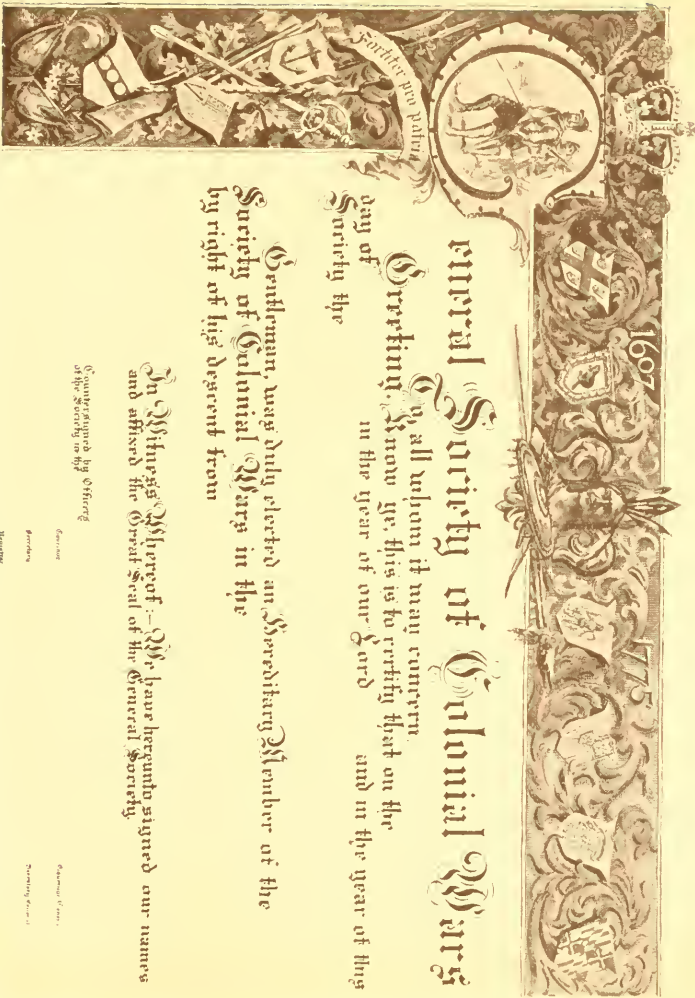 1607
1775
Fortiter pro patria
eneral Society of Colonial Wars
To all whom it may concern
Greeting. Know ye, this is to certify that on the
day of in the year of our Lord and in the year of this
Society the
Gentleman, was duly elected an Hereditary Member of the
Society of Colonial Wars in the
by right of his descent from
In Witness Whereof:—We have hereunto signed our names
and affixed the Great Seal of the General Society.
Countersigned by Officers
of the Society in the
Governor
Secretary
Registrar
Governor General
Secretary General